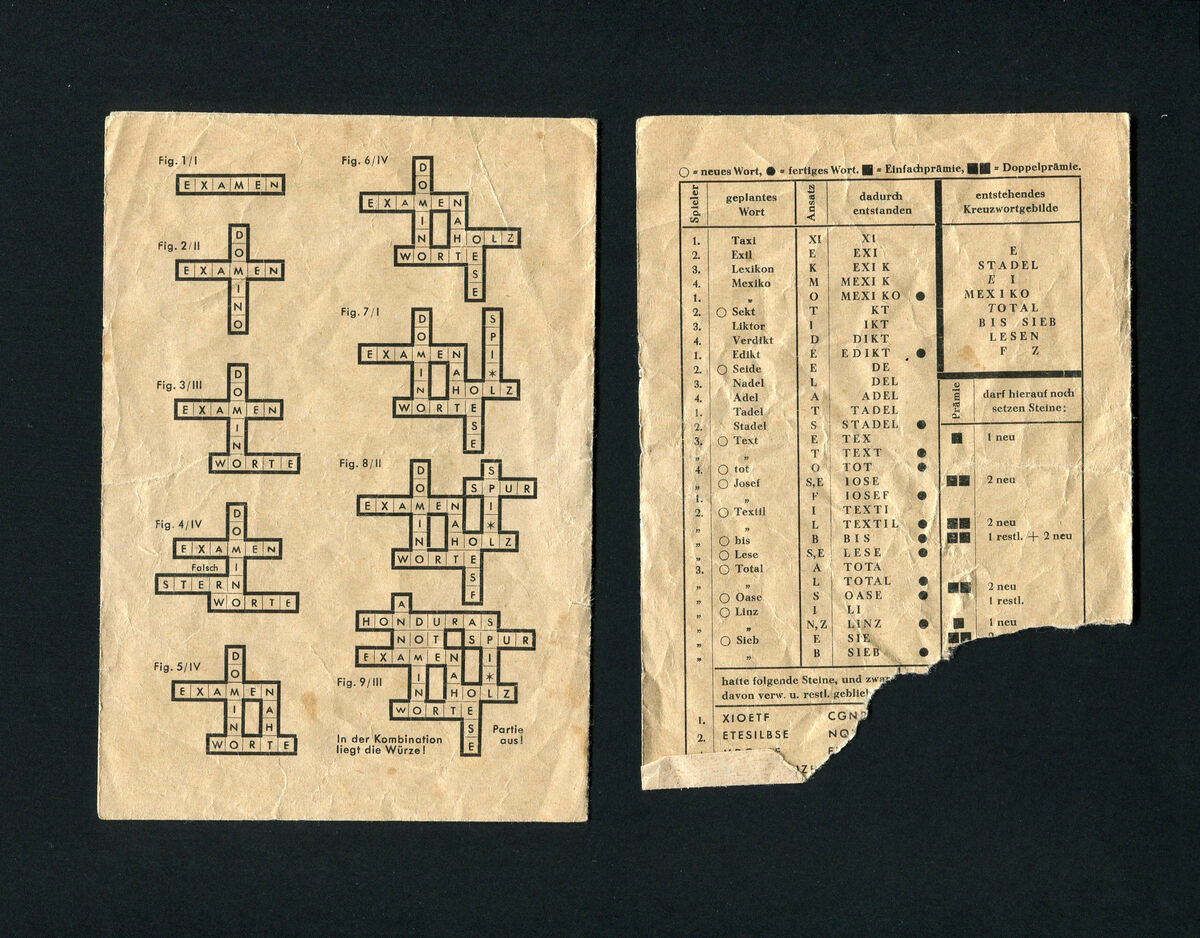 Fig. 1/I
EXAMEN
Fig. 2/II
DOMINO
EXAMEN
Fig. 3/III
DOMINO
EXAMEN
WORTE
Fig. 4/IV
DOMINO
EXAMEN
Falsch
STERN
WORTE
Fig. 5/IV
DOMINO
EXAMEN
NAHT
WORTE
Fig. 6/IV
DOMINO
EXAMEN
NAHT
HOLZ
WORTE
LESE
Fig. 7/I
DOMINO
SPI*L
EXAMEN
NAHT
HOLZ
WORTE
LESE
Fig. 8/II
DOMINO
SPI*L
SPUR
EXAMEN
NAHT
HOLZ
WORTE
LESE
Fig. 9/III
HONDURAS
NOT SPUR
EXAMEN
HOLZ
WORTE
In der Kombination
liegt die Würze!
Partie
aus!
○ = neues Wort, ● = fertiges Wort. ■ = Einfachprämie, ■■ = Doppelprämie.
Spieler geplantes Wort Ansatz dadurch entstanden entstehendes Kreuzwortgebilde
1. Taxi XI XI
2. Exil E EXI
3. Lexikon K EXIK
4. Mexiko M MEXIK
1. „ O MEXIKO ●
2. ○ Sekt T KT
3. Liktor I IKT
4. Verdikt D DIKT
1. Edikt E EDIKT ●
2. ○ Seide E DE
3. Nadel L DEL
4. Adel A ADEL
1. Tadel T TADEL
2. Stadel S STADEL ●
3. ○ Text E TEX
„ „ T TEXT ●
4. ○ tot O TOT ●
„ ○ Josef S,E IOSE
1. „ F IOSEF ●
2. ○ Textil I TEXTI
„ „ L TEXTIL ●
„ ○ bis B BIS ●
„ ○ Lese S,E LESE ●
3. ○ Total A TOTA
„ „ L TOTAL ●
„ ○ Oase S OASE ●
„ ○ Linz I LI
„ „ N,Z LINZ ●
„ ○ Sieb E SIE
„ „ B SIEB ●
E
STADEL
E I
MEXIKO
TOTAL
BIS SIEB
LESEN
F Z
Prämie darf hierauf noch setzen Steine;
■ 1 neu
■■ 2 neu
■■ 2 neu
■■ 1 restl. + 2 neu
■■ 2 neu
1 restl.
■ 1 neu
■■
hatte folgende Steine, und
davon verw. u. restl.
1. XIOETF
2. ETESILBSE